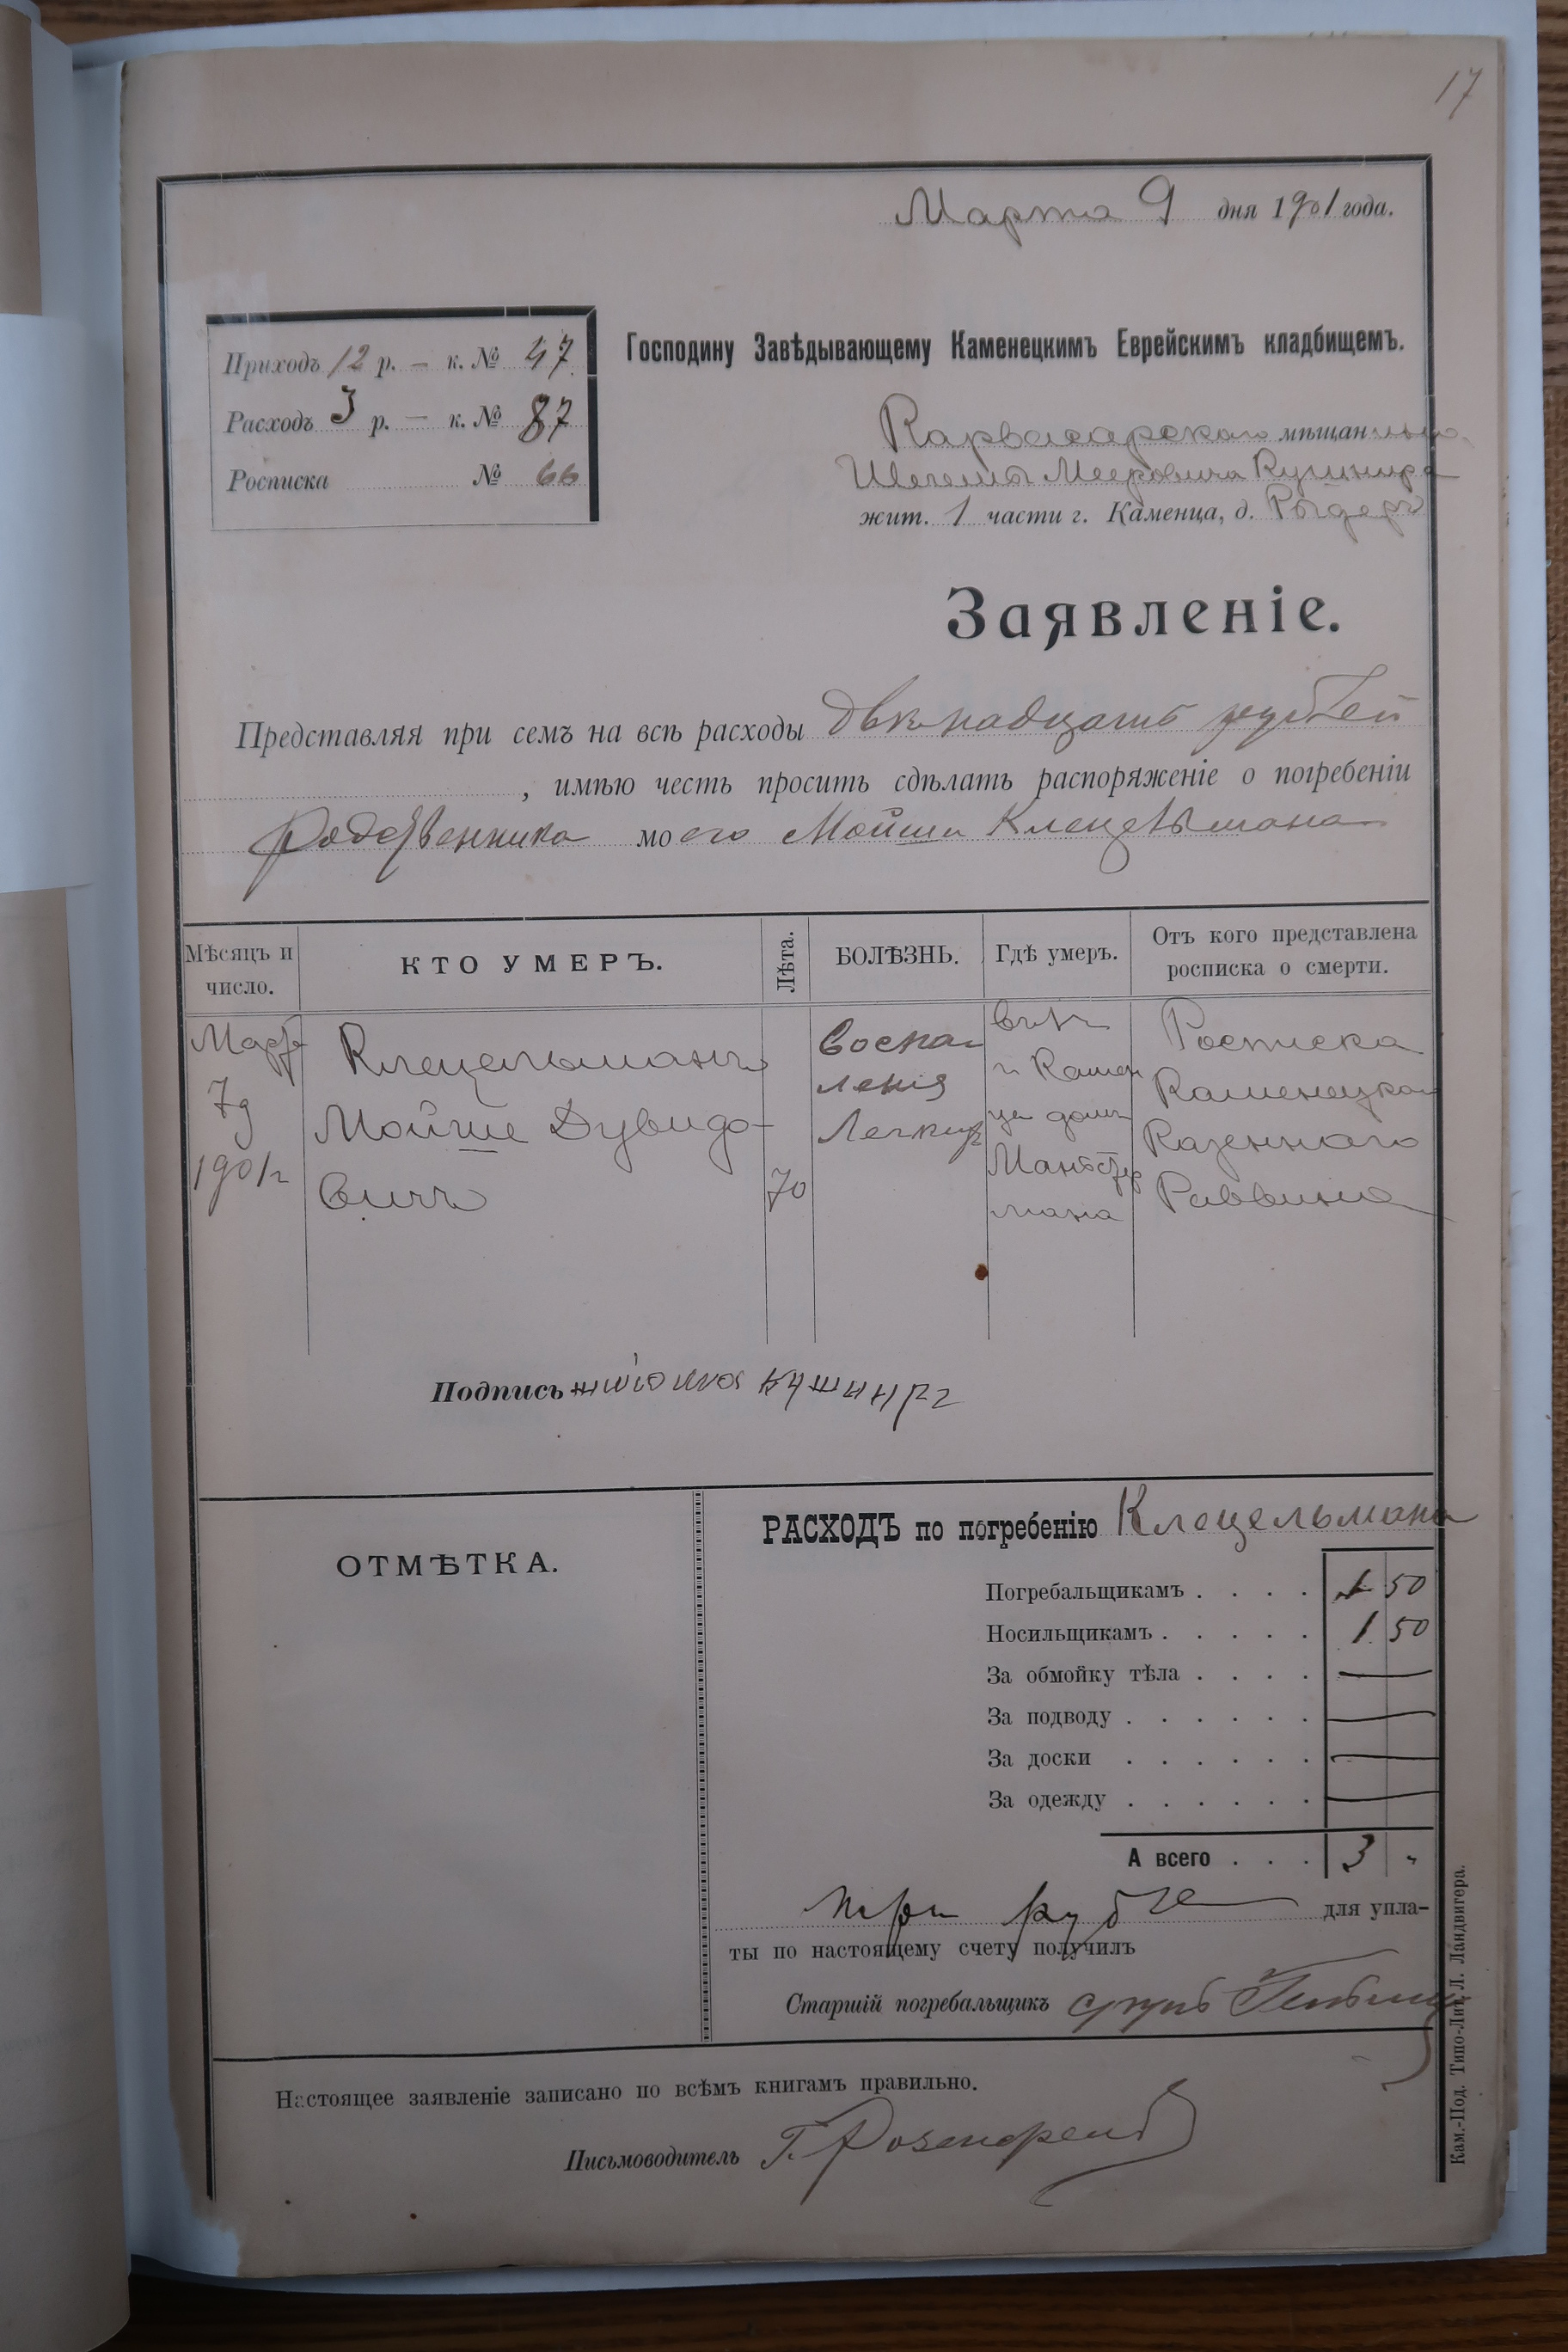 17
Марта 9 дня 1901 года.
Приходъ 12 р. — к. № 47
Расходъ 3 р. — к. № 87
Росписка № 66
Господину Завѣдывающему Каменецкимъ Еврейскимъ кладбищемъ.
Карвасарского мѣщанина
Мееровича Кушнира
жит. 1 части г. Каменца, д.
Заявленіе.
Представляя при семъ на всѣ расходы двѣнадцать рублей
, имѣю честь просить сдѣлать распоряженіе о погребеніи
родственника моего Мойши Клецельмана
Мѣсяцъ и число.
КТО УМЕРЪ.
Лѣта.
БОЛѢЗНЬ.
Гдѣ умеръ.
Отъ кого представлена росписка о смерти.
Март
7д
1901г
Клецельманъ
Мойше Дувидо-
вичъ
70
Воспа-
ленія
Легкихъ
въ
г Камен
це домъ
мана
Росписка
Каменецкого
Казенного
Раввина
Подпись Кушниръ
ОТМѢТКА.
РАСХОДЪ по погребенію Клецельмана
Погребальщикамъ . . . . 1 50
Носильщикамъ . . . . . 1 50
За обмойку тѣла . . . . —
За подводу . . . . . . —
За доски . . . . . . —
За одежду . . . . . . —
А всего . . . 3 "
три рубле для упла-
ты по настоящему счету получилъ
Старшій погребальщикъ
Настоящее заявленіе записано по всѣмъ книгамъ правильно.
Письмоводитель Г. Розенфельд
Кам.-Под. Типо-Лит. Л. Ландвигера.